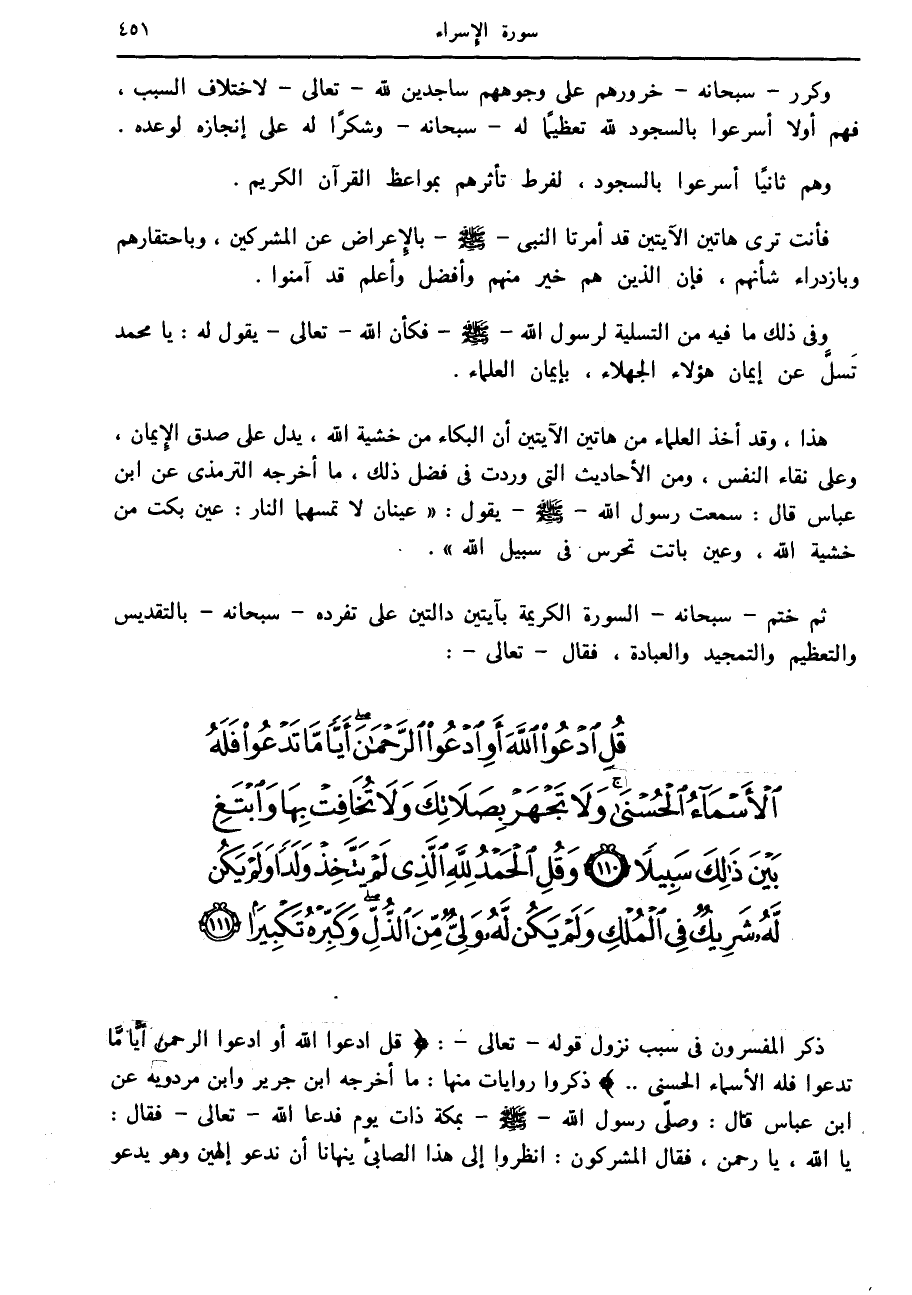 سورة الإسراء ٤٥١
وكرر – سبحانه – خرورهم على وجوههم ساجدين لله – تعالى – لاختلاف السبب ،
فهم أولا أسرعوا بالسجود لله تعظيمًا له – سبحانه – وشكرًا له على إنجازه لوعده .
وهم ثانيًا أسرعوا بالسجود ، لفرط تأثرهم بمواعظ القرآن الكريم .
فأنت ترى هاتين الآيتين قد أمرتا النبى – ﷺ – بالإعراض عن المشركين ، وباحتقارهم
وبازدراء شأنهم ، فإن الذين هم خير منهم وأفضل وأعلم قد آمنوا .
وفى ذلك ما فيه من التسلية لرسول الله – ﷺ – فكأن الله – تعالى – يقول له : يا محمد
تَسلَّ عن إيمان هؤلاء الجهلاء ، بإيمان العلماء .
هذا ، وقد أخذ العلماء من هاتين الآيتين أن البكاء من خشية الله ، يدل على صدق الإيمان ،
وعلى نقاء النفس ، ومن الأحاديث التى وردت فى فضل ذلك ، ما أخرجه الترمذى عن ابن
عباس قال : سمعت رسول الله – ﷺ – يقول : « عينان لا تمسهما النار : عين بكت من
خشية الله ، وعين باتت تحرس فى سبيل الله » .
ثم ختم – سبحانه – السورة الكريمة بآيتين دالتين على تفرده – سبحانه – بالتقديس
والتعظيم والتمجيد والعبادة ، فقال – تعالى – :
قُلِ ٱدْعُوا۟ ٱللَّهَ أَوِ ٱدْعُوا۟ ٱلرَّحْمَـٰنَ ۖ أَيًّا مَّا تَدْعُوا۟ فَلَهُ
ٱلْأَسْمَآءُ ٱلْحُسْنَىٰ ۚ وَلَا تَجْهَرْ بِصَلَاتِكَ وَلَا تُخَافِتْ بِهَا وَٱبْتَغِ
بَيْنَ ذَٰلِكَ سَبِيلًا ١١٠ وَقُلِ ٱلْحَمْدُ لِلَّهِ ٱلَّذِى لَمْ يَتَّخِذْ وَلَدًا وَلَمْ يَكُن
لَّهُۥ شَرِيكٌ فِى ٱلْمُلْكِ وَلَمْ يَكُن لَّهُۥ وَلِىٌّ مِّنَ ٱلذُّلِّ ۖ وَكَبِّرْهُ تَكْبِيرًا ١١١
ذكر المفسرون فى سبب نزول قوله – تعالى – : ﴿ قل ادعوا الله أو ادعوا الرحمن أَيًّا مَّا
تدعوا فله الأسماء الحسنى .. ﴾ ذكروا روايات منها : ما أخرجه ابن جرير وابن مردويه عن
ابن عباس قال : وصلّى رسول الله – ﷺ – بمكة ذات يوم فدعا الله – تعالى – فقال :
يا الله ، يا رحمن ، فقال المشركون : انظروا إلى هذا الصابئ ينهانا أن ندعو إلهين وهو يدعو